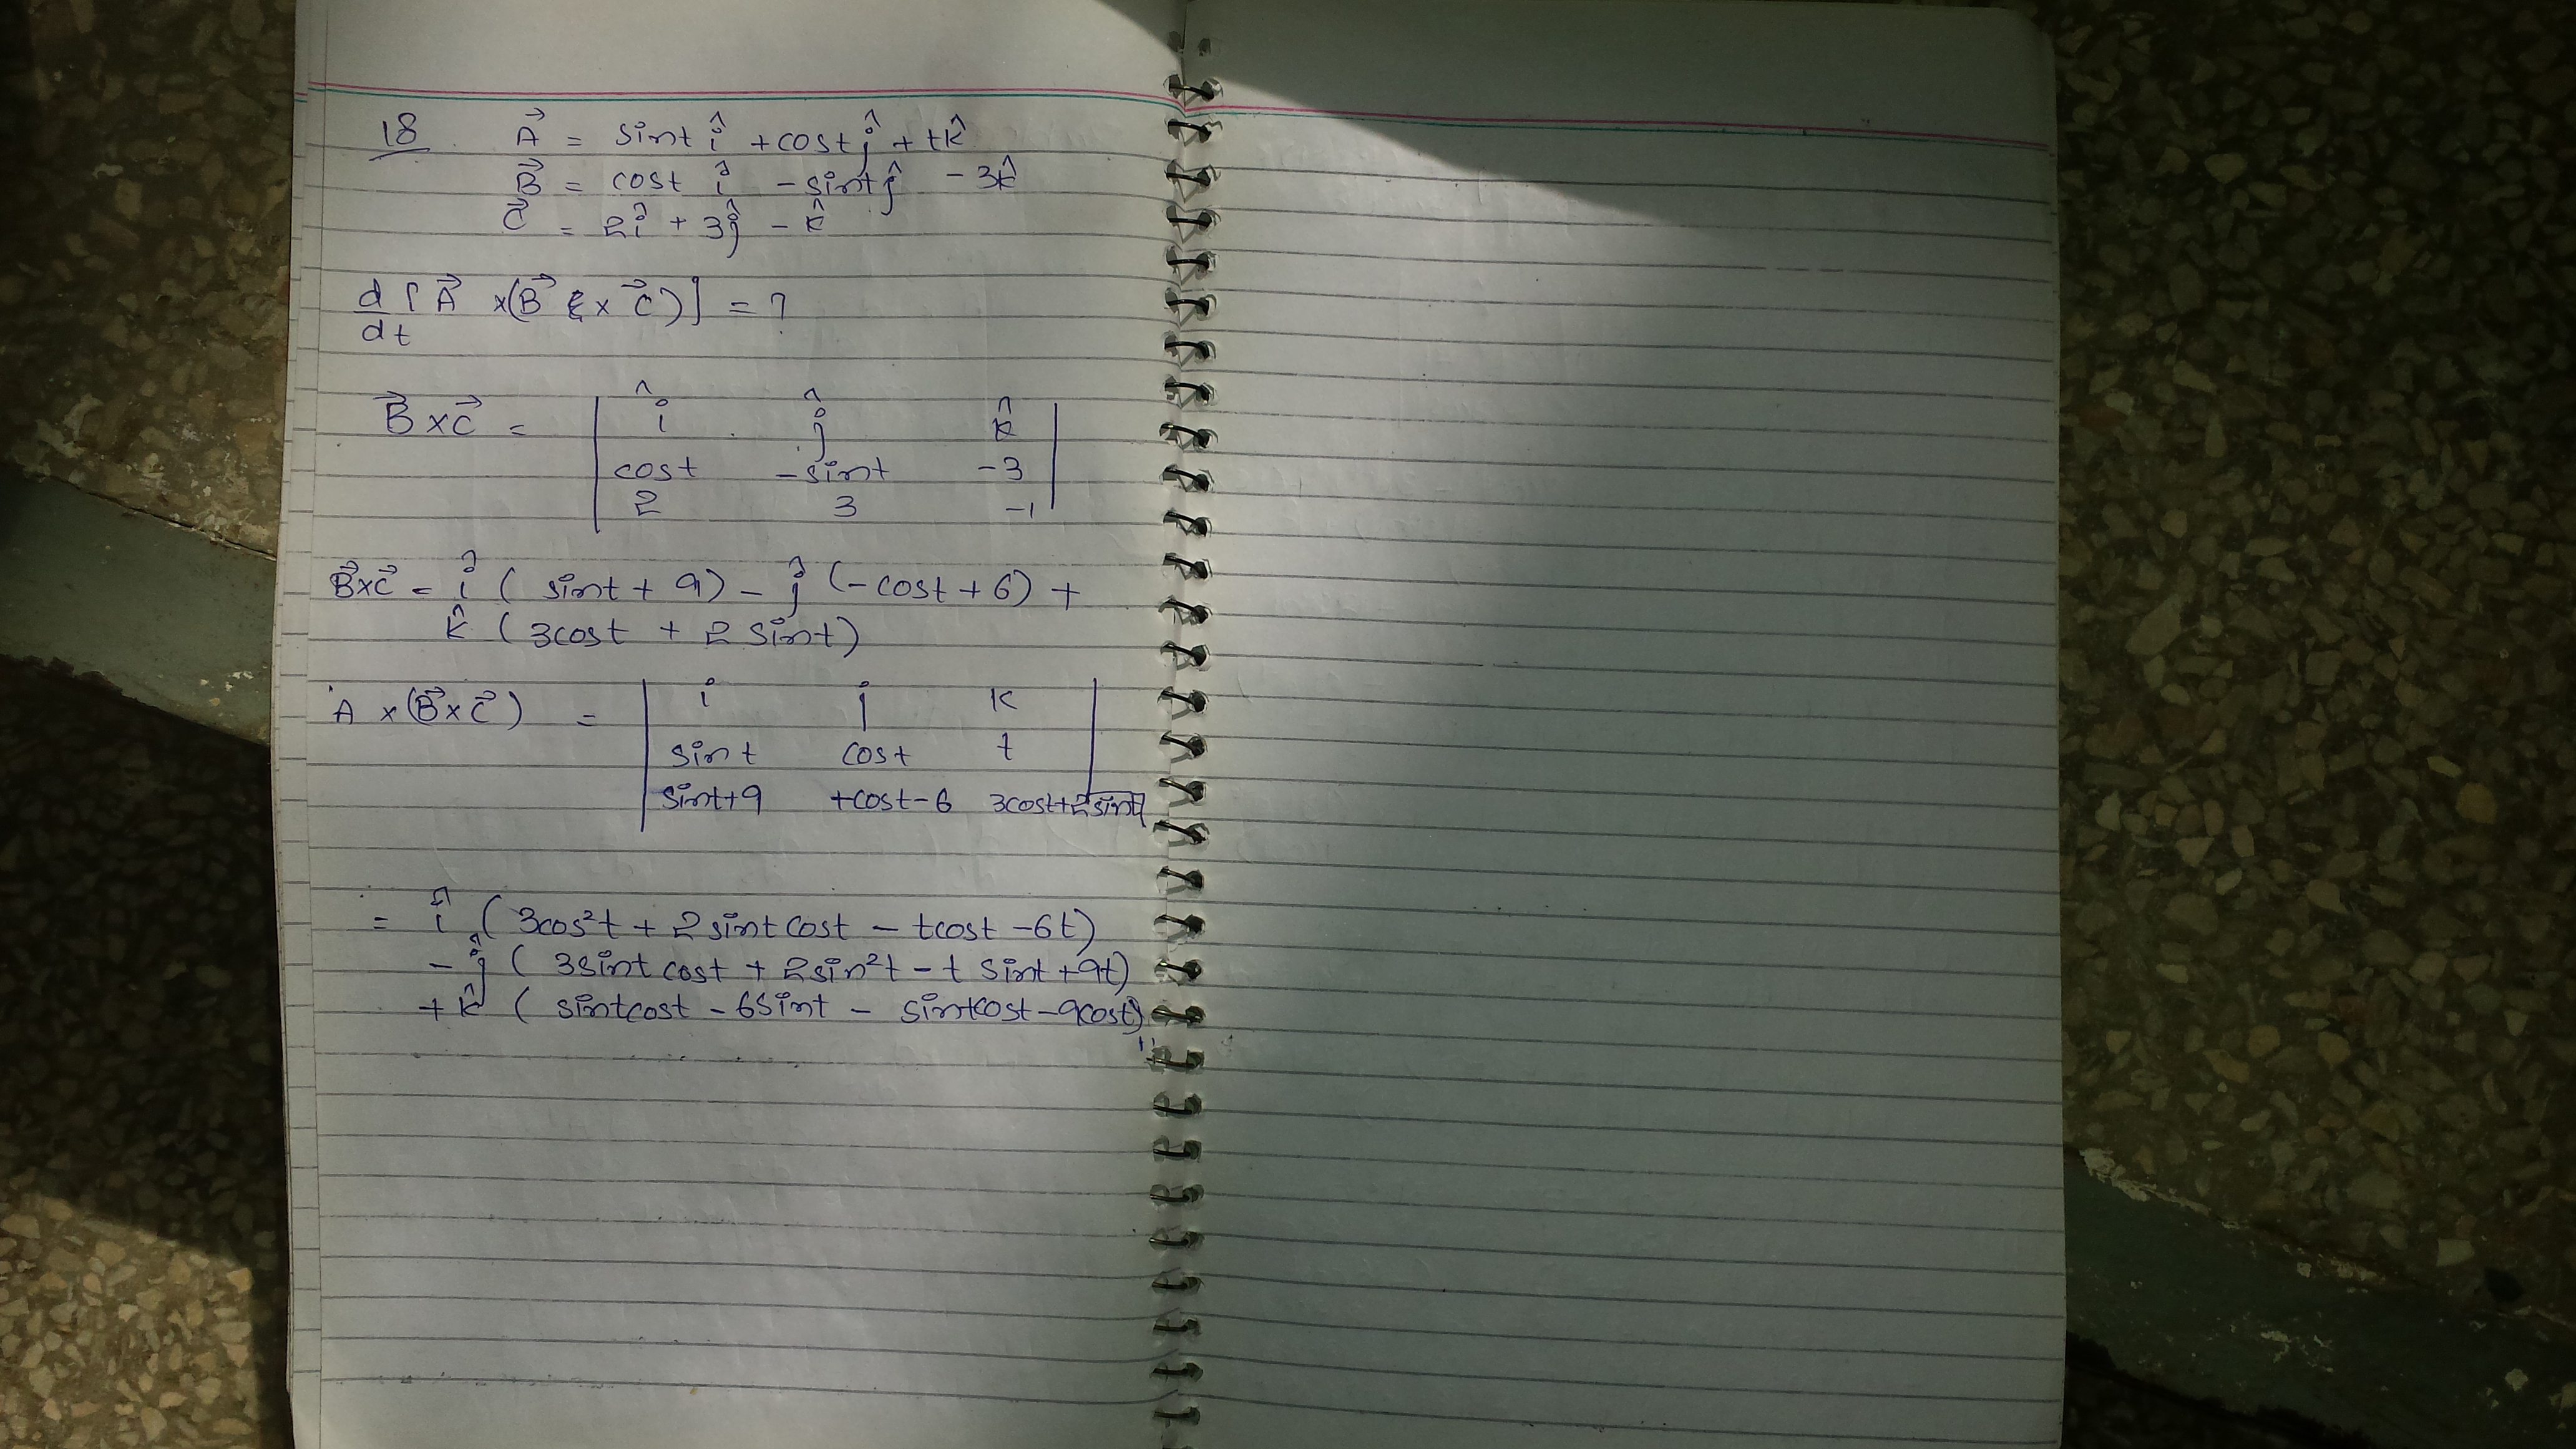 18 A⃗ = sint î + cost ĵ + tk̂
B⃗ = cost î - sint ĵ - 3k̂
C⃗ = 2î + 3ĵ - k̂
d/dt [A⃗ ×(B⃗ × C⃗)] = ?
B⃗×C⃗ = | î ĵ k̂ |
cost -sint -3
2 3 -1
B⃗×C⃗ = î ( sint + 9) - ĵ (-cost + 6) +
k̂ (3cost + 2 sint)
A × (B⃗×C⃗) = | i j k |
sint cost t
sint+9 +cost-6 3cost+2sint
= î ( 3cos²t + 2 sint cost - tcost -6t)
- ĵ ( 3sint cost + 2sin²t - t sint +9t)
+ k̂ ( sintcost - 6sint - sintcost -9cost)